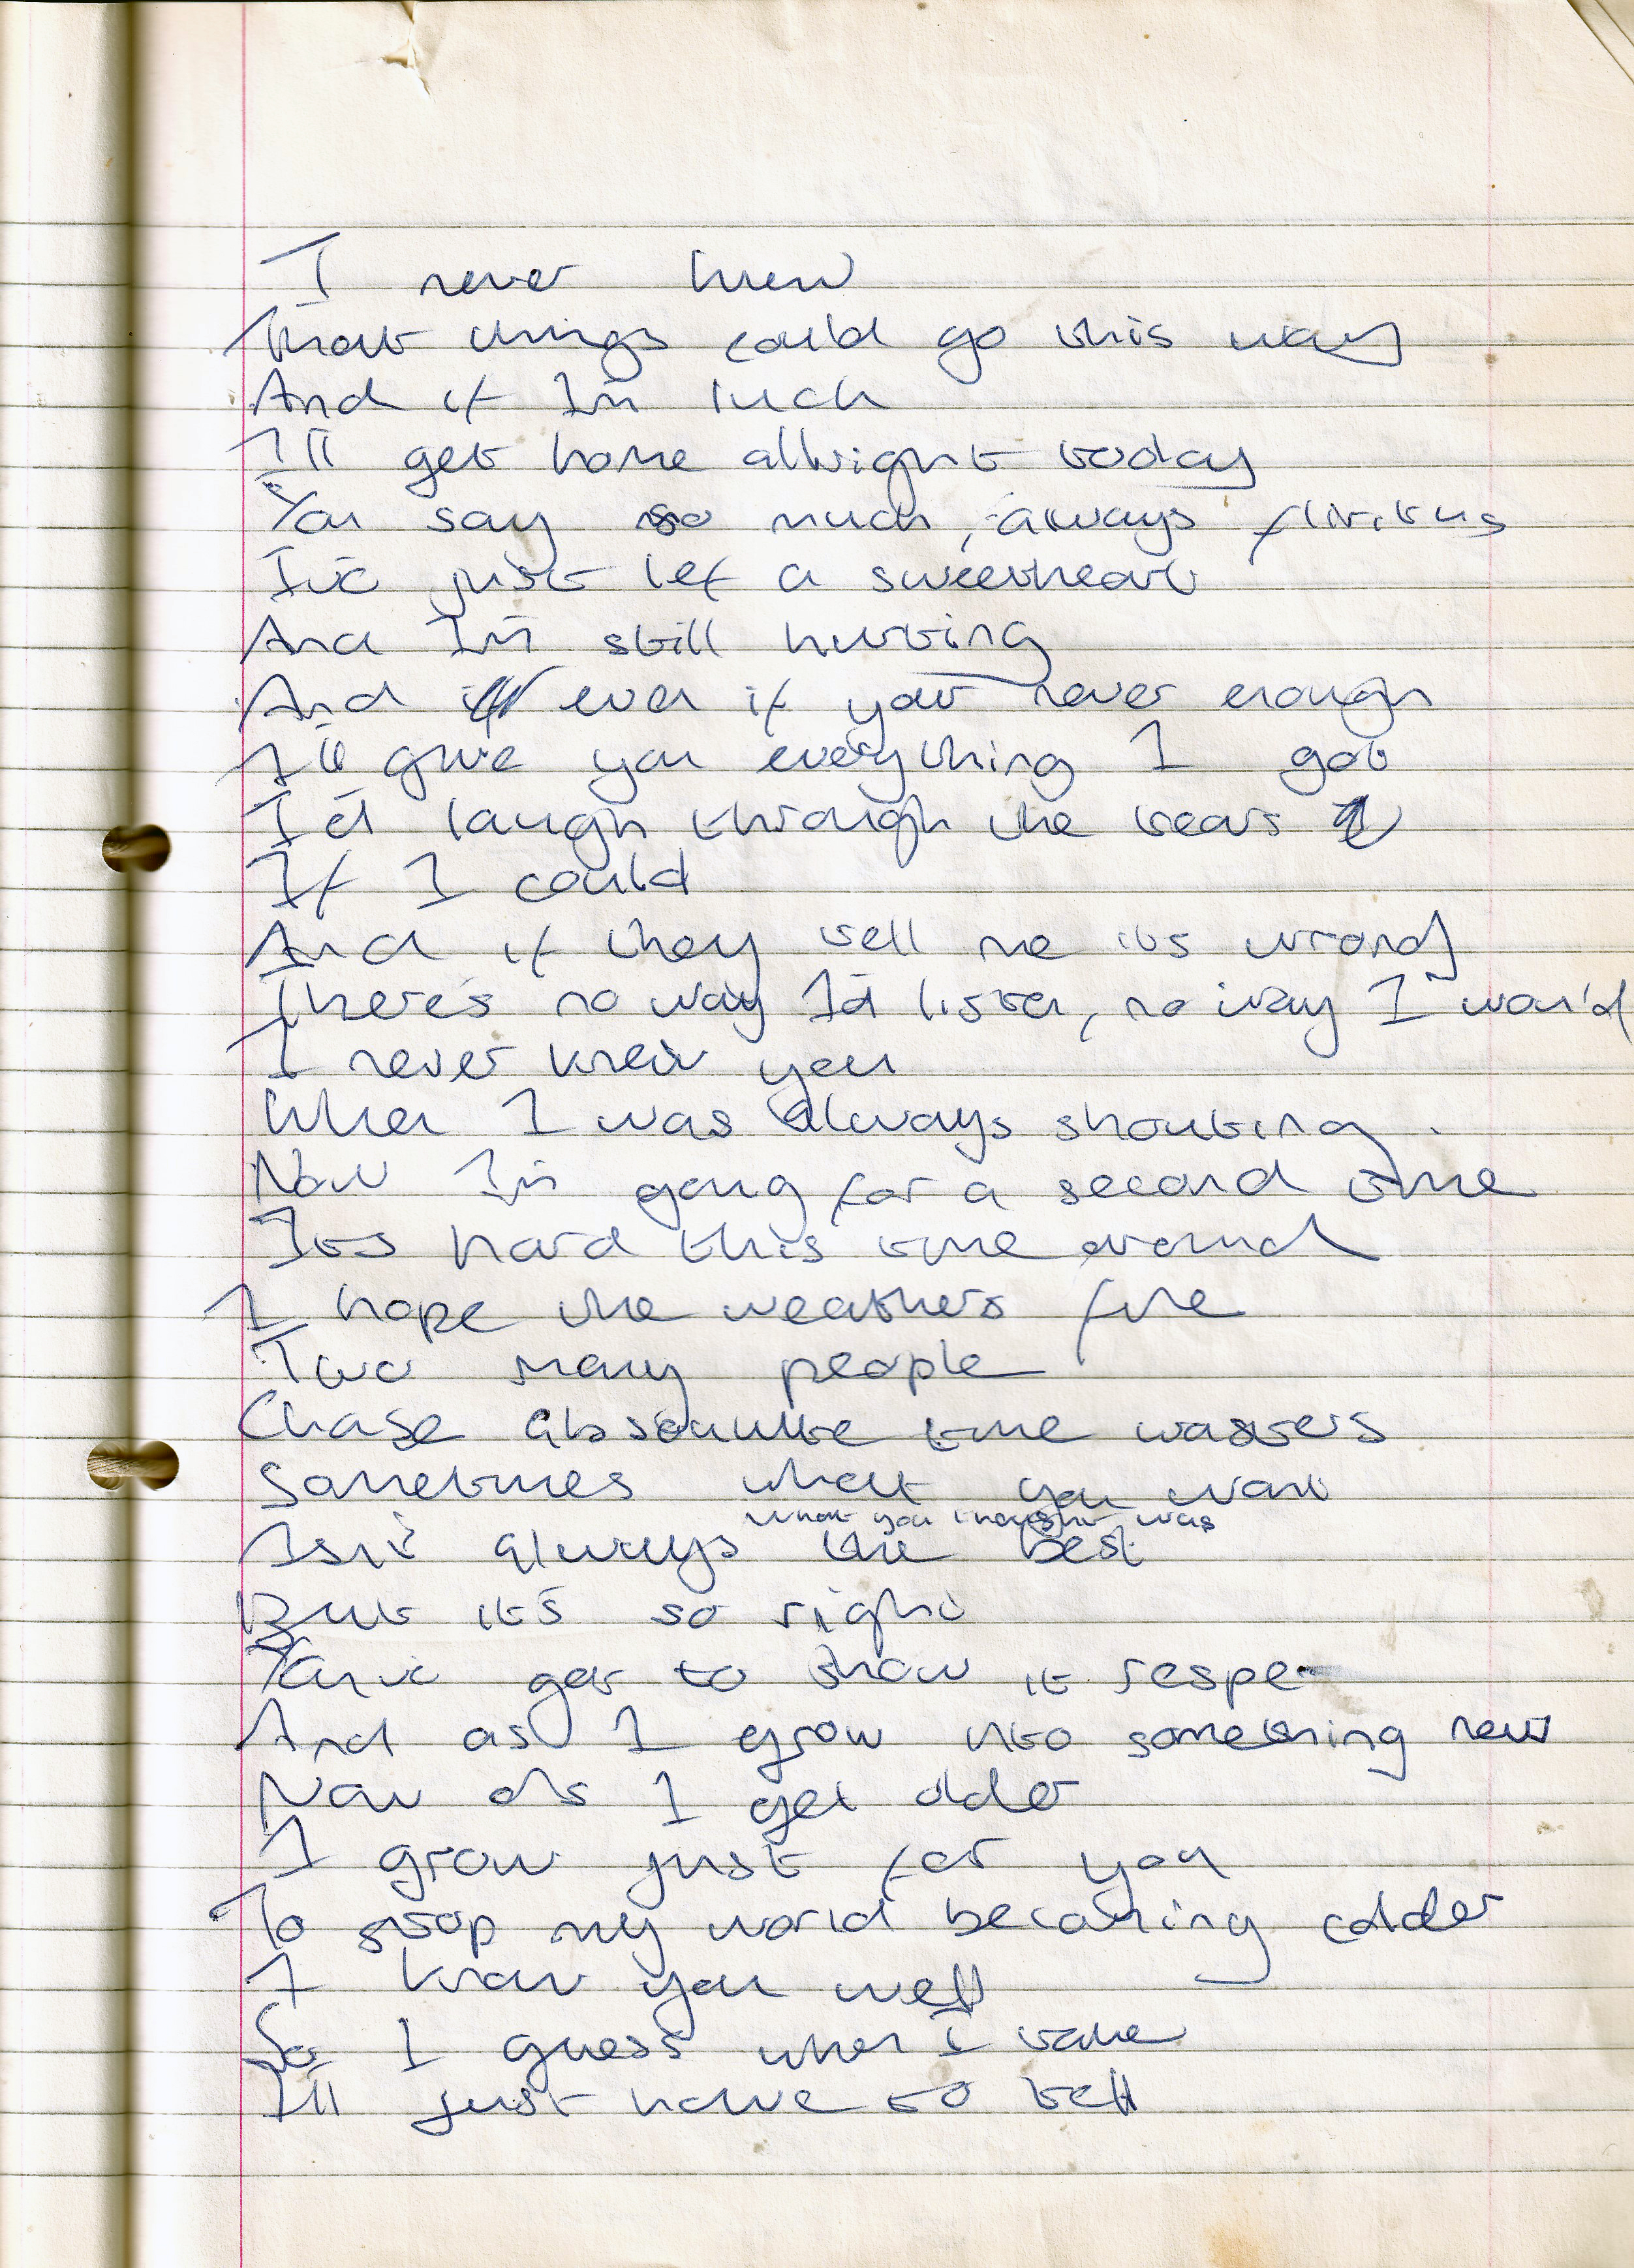 I never knew
That things could go this way
And if I'm luck
I'll get home allright today
You say so much, always flirting
I've just lef a sweetheart
And I'm still hurting
And even if your never enough
I'll give you everything I got
I'd laugh through the tears
If I could
And if they tell me its wrong
There's no way I'd listen, no way I would
I never knew you
When I was always shouting.
Now I'm going for a second time
Its hard this time around
I hope the weathers fine
Two many people
Chase absoulute time wasters
Sometimes what you want
what you thought was
Isn't always the best
But it's so right
You've get to show it respe
And as I grow into something new
Now as I get older
I grow just for you
To stop my world becoming colder
I know you well
So I guess when I
I'll just have to tell